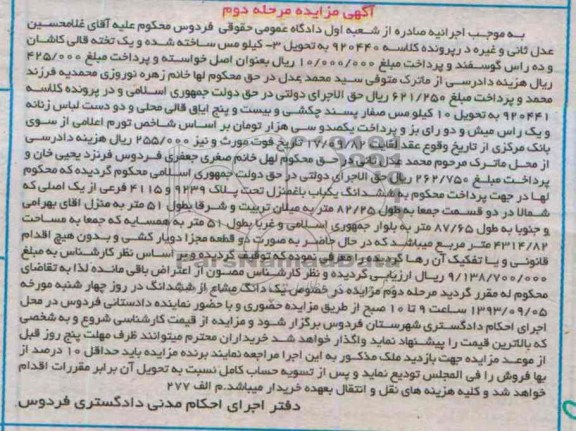 آگهی مزایده مرحله دوم
به موجب اجرائیه صادره از شعبه اول دادگاه عمومی حقوقی فردوس محکوم علیه آقای غلامحسین
عدل ثانی و غیره در پرونده کلاسه ۹۲۰۴۴۰ به تحویل ۳- کیلو مس ساخته شده و یک تخته قالی کاشان
و ده راس گوسفند و پرداخت مبلغ ۱۰/۰۰۰/۰۰۰ ریال بعنوان اصل خواسته و پرداخت مبلغ ۴۲۵/۰۰۰
ریال هزینه دادرسی از ماترک متوفی سید محمد عدل در حق محکوم لها خانم زهره نوروزی محمدیه فرزند
محمد و پرداخت مبلغ ۶۲۱/۲۵۰ ریال حق الاجرای دولتی در حق دولت جمهوری اسلامی و در پرونده کلاسه
۹۲۰۴۴۱ به تحویل ۱۰ کیلو مس صفار پسند چکشی و بیست و پنج ایاق قالی محلی و دو دست لباس زنانه
و یک راس میش و دو رای بز و پرداخت یکصدو سی هزار تومان بر اساس شاخص تورم اعلامی از سوی
بانک مرکزی از تاریخ وقوع عقد لغایت تاریخ فوت مورث و نیز ۲۵۵/۰۰۰ ریال هزینه دادرسی
از محل ماترک مرحوم محمد عدل ثانی در حق محکوم لهل خانم صغری جعفری فردوس فرنزد یحیی خان و
پرداخت مبلغ ۲۶۲/۷۵۰ ریال حق الاجرای دولتی در حق دولت جمهوری اسلامی محکوم گردیده که محکوم
لها در جهت پرداخت محکوم به ششدانگ یکباب باغمنزل تحت پلاک ۹۲۳۹ و ۴۱۱۵ فرعی از یک اصلی که
شمالا در دو قسمت جمعا به طول ۸۲/۲۵ متر به میلان تربیت و شرقا بطول ۵۱ متر به منزل اقای بهرامی
و جنوبا به طول ۸۷/۶۵ متر به بلوار جمهوری اسلامی و غربا بطول ۵۱ متر به همسایه که جمعا به مساحت
۴۳۱۴/۸۲ متر مربع میباشد که در حال حاضر به صورت دو قطعه مجزا دویار کشی و بدون هیچ اقدام
قانونی و یا تفکیک آن رها گردیده را معرفی نموده که توقیف گردیده و بر اساس نظر کارشناس به مبلغ
۹/۱۳۸/۷۰۰/۰۰۰ ریال ارزیابی گردیده و نظر کارشناس مصون از اعتراض باقی مانده لذا به تقاضای
محکوم له مقرر گردید مرحله دوم مزایده در خصوص یک دانگ مشاع از ششدانگ در روز چهار شنبه مورخه
۱۳۹۳/۰۹/۰۵ ساعت ۹ تا ۱۰ صبح از طریق مزایده حضوری و با حضور نماینده دادستانی فردوس در محل
اجرای احکام دادگستری شهرستان فردوس برگزار شود و مزایده از قیمت کارشناسی شروع و به شخصی
که بالاترین قیمت را پیشنهاد نماید واگذار خواهد شد خریداران محترم میتوانند ظرف مهلت پنج روز قبل
از موعد مزایده جهت بازدید ملک مذکور به این اجرا مراجعه نمایند برنده مزایده باید حداقل ۱۰ درصد از
بها فروش را فی المجلس تودیع نماید و پس از تسویه حساب کامل نسبت به تحویل آن برابر مقررات اقدام
خواهد شد و کلیه هزینه های نقل و انتقال بعهده خریدار میباشد.م الف ۲۷۷
دفتر اجرای احکام مدنی دادگستری فردوس